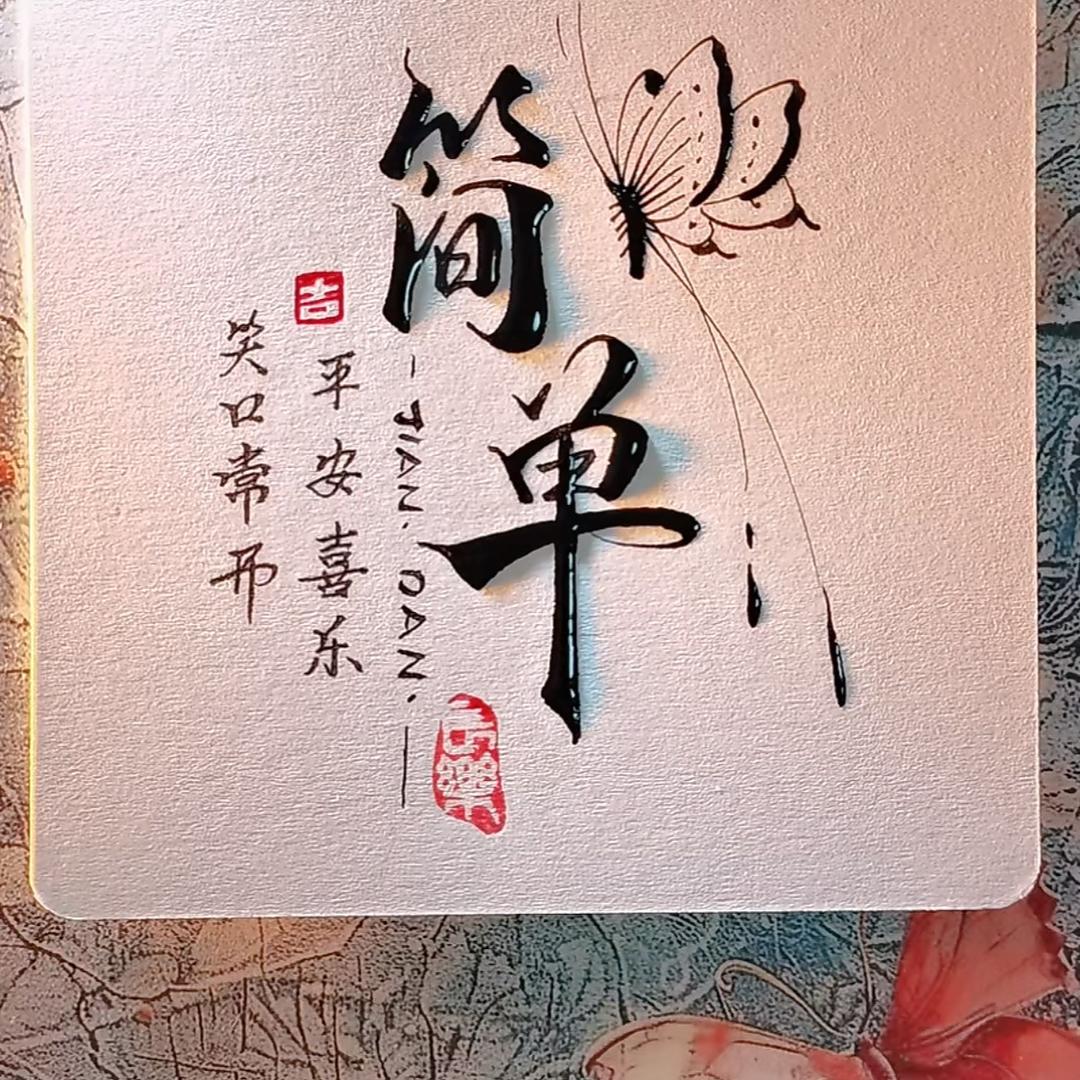 简单
JIAN. DAN.
吉
平安喜乐
笑口常开